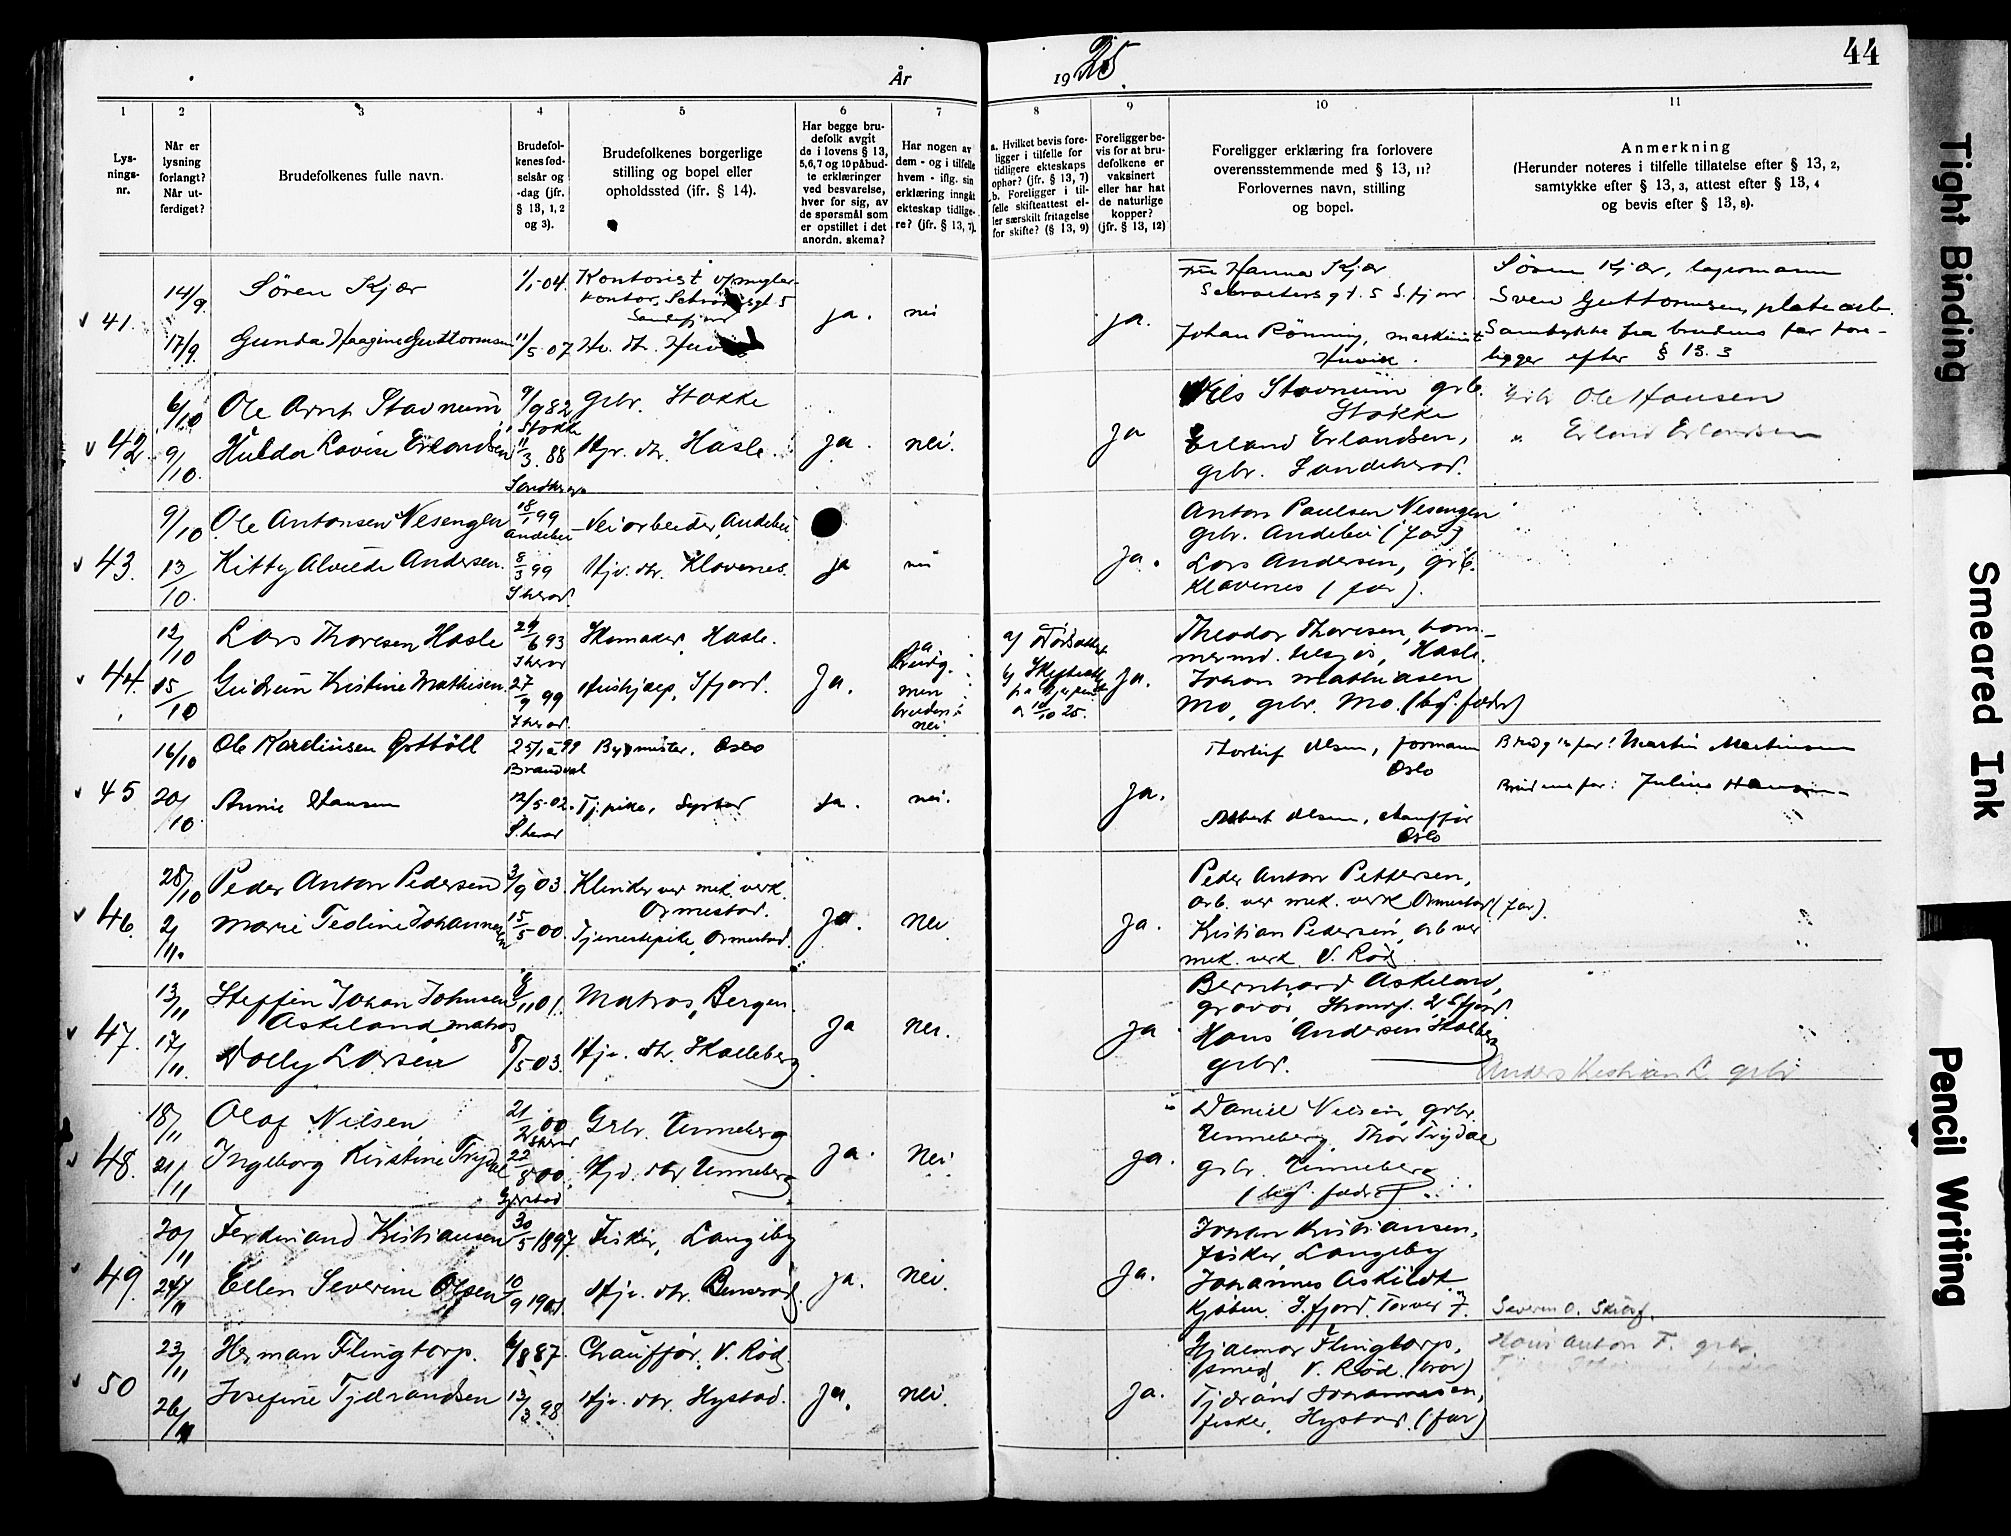 44
År
1925.
1
2
3
4
5
6
7
8
9
10
11
Lys-
nings-
nr.
Når er
lysning
forlangt?
Når ut-
ferdiget?
Brudefolkenes fulle navn.
Brudefol-
kenes fød-
selsår og
-dag (jfr.
§ 13, 1, 2
og 3).
Brudefolkenes borgerlige
stilling og bopel eller
opholdssted (ifr. § 14).
Har begge bru-
defolk avgit
de i lovens § 13,
5,6,7 og 10 påbud-
te erklæringer
ved besvarelse,
hver for sig, av
de spørsmål som
er opstillet i det
anordn. skema?
Har nogen av
dem - og i tilfelle
hvem - iflg. sin
erklæring inngåt
ekteskap tidlige-
re? (jfr. § 13, 7).
a. Hvilket bevis fore-
ligger i tilfelle for
tidligere ekteskaps
ophør? (jfr. § 13, 7)
b. Foreligger i til-
felle skifteattest el-
ler særskilt fritagelse
for skifte? (§ 13, 9)
Foreligger be-
vis for at bru-
defolkene er
vaksinert
eller har hat
de naturlige
kopper?
(jfr. § 13, 12)
Foreligger erklæring fra forlovere
overensstemmende med § 13, 11?
Forlovernes navn, stilling
og bopel.
Anmerkning
(Herunder noteres i tilfelle tillatelse efter § 13, 2,
samtykke efter § 13, 3, attest efter § 13, 4
og bevis efter § 13, 8).
41.
14/9.
17/9.
Søren Kjær
Gunda Haagine Guttormsen
1/1-04.
11/5 07.
Kontorist v/megler-
kontor,
Sandefjord
ja.
nei
ja.
Hanna Kjær
gt. 5 S.fjord
Johan Rönning, maskinist
Søren Kjær,
Sven Guttormsen, platearb.
Samtykke fra brudens far fore-
ligger efter § 13.3
42.
6/10
9/10.
Ole Arnt Stavnum
Hulda Lovise Erlandsen
9/9 82
Stokke
11/3. 88
grbr. Stokke
Hjv. dtr. Hasle.
ja.
nei.
ja
Nils Stavnum grb.
Stokke
Erland Erlandsen,
grbr. Sandeherad.
Grbr Ole Hansen
" Erland Erlandsen
43.
9/10
13/10.
Ole Antonsen Nesengen
Kitty Alvilde Andersen.
18/1 99
Andebu
8/3 99
S.herad.
Veiarbeider, Andebu
Hjv. dtr. Klavenes.
ja
nei
ja.
Anton Paulsen Nesengen
grbr. Andebu (far)
Lars Andersen, grb.
Klavenes (far).
44.
12/10
15/10
Lars Thoresen Hasle
Gudrun Kristine Mathisen.
29/6 93
S.herad
27/9 99
S.herad.
Skomaker, Hasle.
Hushjelp, Sfjord.
Ja.
ja
Brudg.
men
bruden:
nei
a/ Dödsattest
b/ Skifteatt.
10/10 25.
Ja.
Theodor Thoresen, töm-
mermd. Hasle.
Johan Mathiasen
Mo, grbr. Mo. (bgf. fedre)
45
16/10
20/10
Ole Karelinsen Grttöll
Annie Hansen
25/12 99
Brandval
12/5-02.
S.herad
Bygmester, Oslo
Tj.pike,
ja.
nei.
ja.
Thorleif Olsen, formann
Oslo
Albert Olsen, chauffør
Oslo
Brudg's far: Martin Martinsen
Brudens far: Julius Hansen
46.
28/10
2/11.
Peder Anton Pedersen
Marie Teoline Johannessen
3/9 03.
15/5-00.
Klinker ved mek. verk.
Ormestad.
Tjenestepike, Ormestad.
ja.
nei.
ja.
Peder Anton Pettersen,
arb. ved mek. verk Ormestad (far).
Kristian Pedersen, arb ved
mek. verk. V. Rød
47.
13/11
17/11.
Steffen Johan Johnsen
Askeland, matros
Dolly Larsen
8/11 01.
8/5 03.
Matros, Bergen.
Hjv. dtr. Skalleberg
ja
nei.
ja
Bernhard Askeland,
gravør, Strandg. 21 Sfjord.
Hans Andersen Skalleberg
grbr.
Anders Kristian L. grbr
48.
18/11
21/11
Olaf Nilsen
Ingeborg Kirstine Trydal
21/2 00
Sherad
22/8 00.
Gjerstad
Grbr. Unneberg
Hjv. dtr Unneberg
ja.
nei.
ja.
Daniel Nilsen, grbr.
Unneberg, Thor Trydal
grbr. Unneberg
(bgf. fedre).
49.
20/11
24/11
Ferdinand Kristiansen
Ellen Severine Olsen
30/5 1897.
10/9 1901.
Fisker, Langeby
Hjv. dtr. Bensrød
ja.
nei.
ja.
Johan Kristiansen,
fisker, Langeby
Johannes Askildt.
Kjøbm. S.fjord. Torvet 7.
Severin O. Skibsf.
50
23/11
26/11
Herman Flingtorp.
Josefine Tjdrandsen
6/8 87.
12/3 98.
Chauffør, V. Rød.
Hjv. dtr. Hystad.
ja.
nei.
ja.
Hjalmar Flingtorp,
smed, V. Rød. (bror)
Tjdrand Johannesen,
fisker, Hystad. (far)
Hans Anton F. grbr.
Tight Binding
Smeared Ink
Pencil Writing